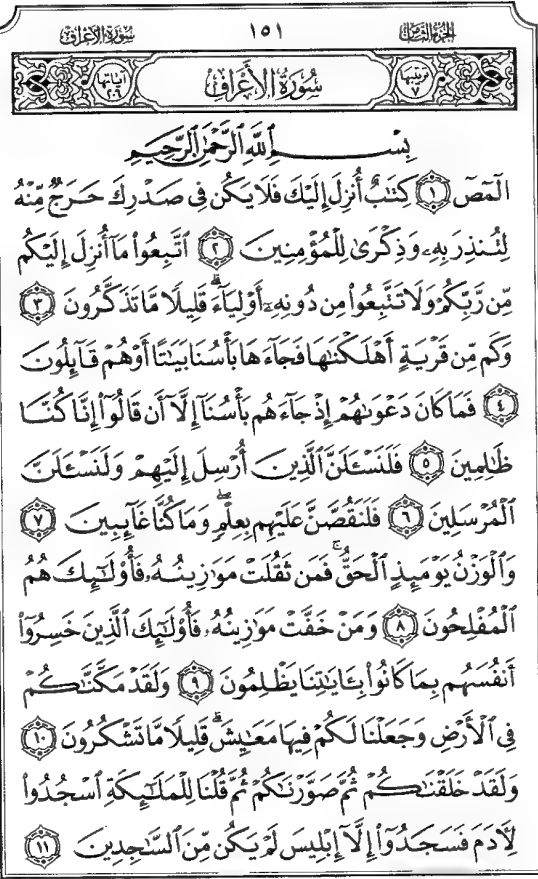 سورة الأعراف ١٥١ الجزء الثامن
ترتيبها ٧ سُورَةُ الأَعْرَافِ آياتها ٢٠٦
بِسْمِ ٱللَّهِ ٱلرَّحْمَٰنِ ٱلرَّحِيمِ
الٓمٓصٓ ١ كِتَٰبٌ أُنزِلَ إِلَيْكَ فَلَا يَكُن فِى صَدْرِكَ حَرَجٌ مِّنْهُ
لِتُنذِرَ بِهِۦ وَذِكْرَىٰ لِلْمُؤْمِنِينَ ٢ ٱتَّبِعُوا۟ مَآ أُنزِلَ إِلَيْكُم
مِّن رَّبِّكُمْ وَلَا تَتَّبِعُوا۟ مِن دُونِهِۦٓ أَوْلِيَآءَ ۗ قَلِيلًا مَّا تَذَكَّرُونَ ٣
وَكَم مِّن قَرْيَةٍ أَهْلَكْنَٰهَا فَجَآءَهَا بَأْسُنَا بَيَٰتًا أَوْ هُمْ قَآئِلُونَ
٤ فَمَا كَانَ دَعْوَىٰهُمْ إِذْ جَآءَهُم بَأْسُنَآ إِلَّآ أَن قَالُوٓا۟ إِنَّا كُنَّا
ظَٰلِمِينَ ٥ فَلَنَسْـَٔلَنَّ ٱلَّذِينَ أُرْسِلَ إِلَيْهِمْ وَلَنَسْـَٔلَنَّ
ٱلْمُرْسَلِينَ ٦ فَلَنَقُصَّنَّ عَلَيْهِم بِعِلْمٍ ۖ وَمَا كُنَّا غَآئِبِينَ ٧
وَٱلْوَزْنُ يَوْمَئِذٍ ٱلْحَقُّ ۚ فَمَن ثَقُلَتْ مَوَٰزِينُهُۥ فَأُو۟لَٰٓئِكَ هُمُ
ٱلْمُفْلِحُونَ ٨ وَمَنْ خَفَّتْ مَوَٰزِينُهُۥ فَأُو۟لَٰٓئِكَ ٱلَّذِينَ خَسِرُوٓا۟
أَنفُسَهُم بِمَا كَانُوا۟ بِـَٔايَٰتِنَا يَظْلِمُونَ ٩ وَلَقَدْ مَكَّنَّٰكُمْ
فِى ٱلْأَرْضِ وَجَعَلْنَا لَكُمْ فِيهَا مَعَٰيِشَ ۗ قَلِيلًا مَّا تَشْكُرُونَ ١٠
وَلَقَدْ خَلَقْنَٰكُمْ ثُمَّ صَوَّرْنَٰكُمْ ثُمَّ قُلْنَا لِلْمَلَٰٓئِكَةِ ٱسْجُدُوا۟
لِـَٔادَمَ فَسَجَدُوٓا۟ إِلَّآ إِبْلِيسَ لَمْ يَكُن مِّنَ ٱلسَّٰجِدِينَ ١١